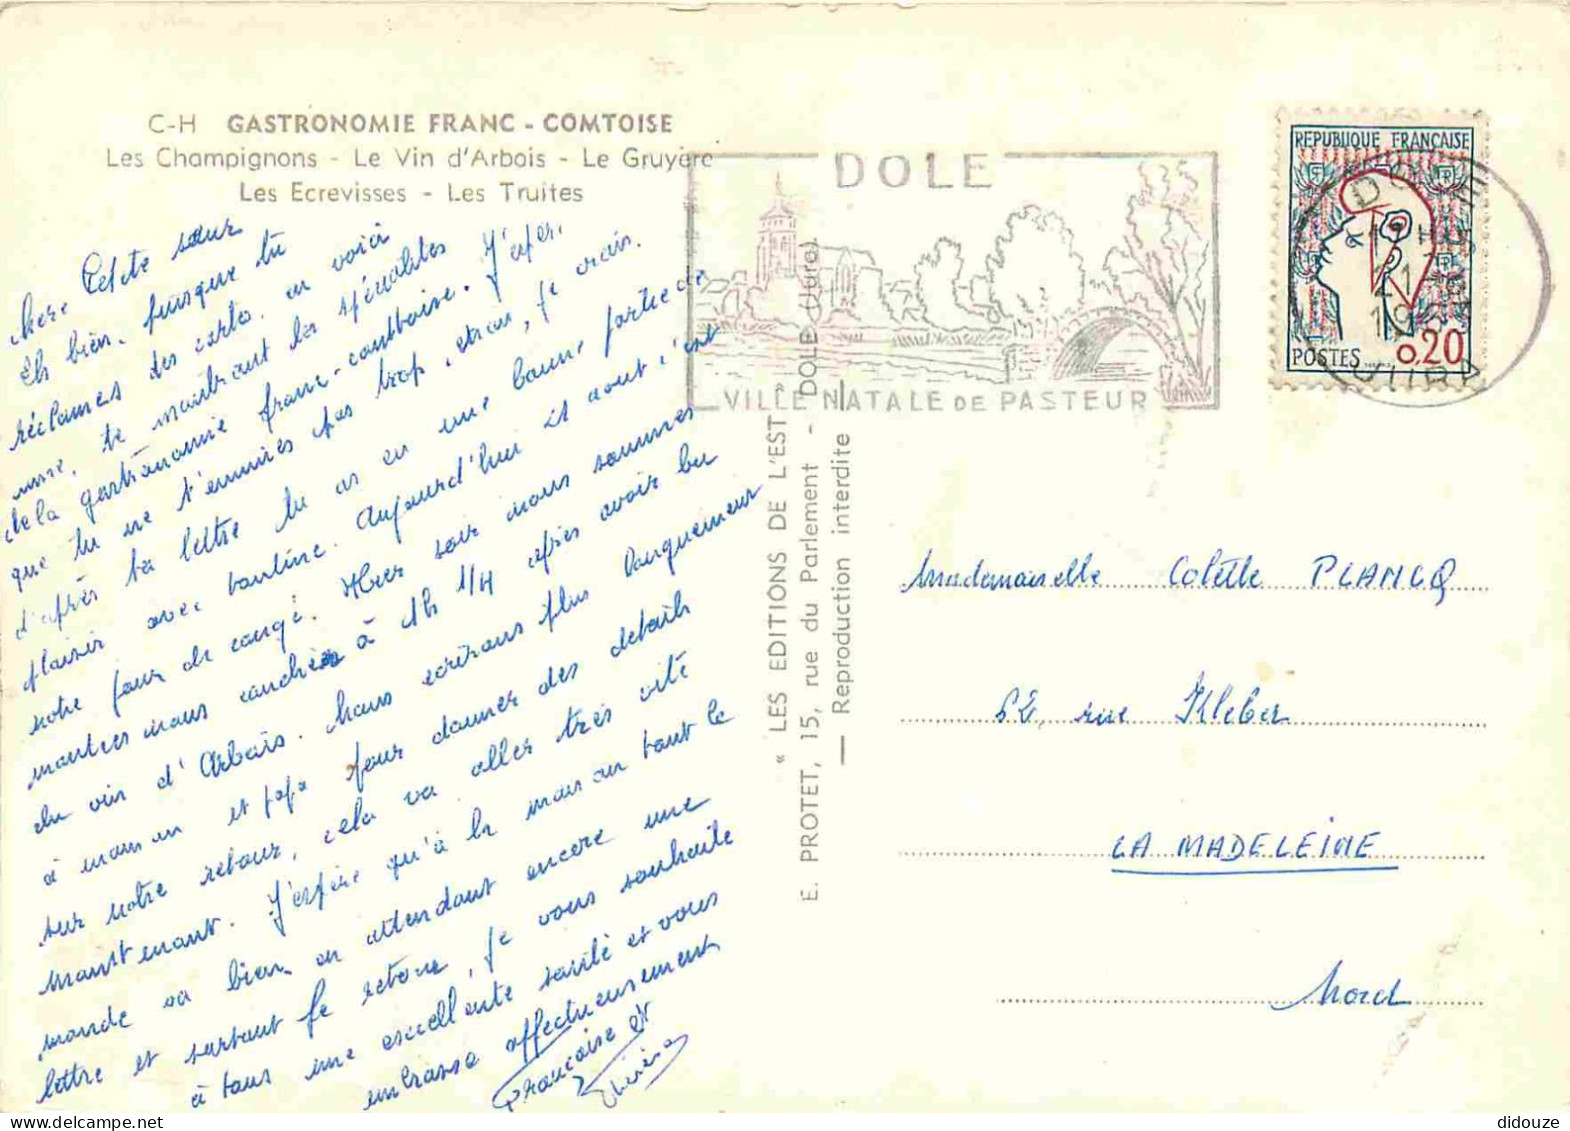 C-H GASTRONOMIE FRANC - COMTOISE
Les Champignons - Le Vin d'Arbois - Le Gruyère
Les Ecrevisses - Les Truites
chere Petite sœur
Eh bien, puisque tu
réclames des cartes, en voici
une, te montrant les spécialités
de la gastronomie franc-comtoise. J'espère
que tu ne t'ennuies pas trop, etnon, je crois.
d'après ta lettre tu as eu une bonne partie de
plaisir avec Pauline. Aujourd'hui 21 aout c'est
notre jour de congé. Hier soir nous sommes
montés nous coucher à 1h 1/4 après avoir bu
du vin d'Arbois. Nous écrirons plus longuement
à maman et papa pour donner des détails
sur notre retour, cela va aller très vite
maintenant. J'espère qu'à la maison tout le
monde va bien en attendant encore une
lettre et surtout le retour, je vous souhaite
à tous une excellente santé et vous
embrasse affectueusement
Françoise et
DOLE
VILLE NATALE DE PASTEUR
REPUBLIQUE FRANÇAISE
POSTES 0,20
" LES EDITIONS DE L'EST "
E. PROTET, 15, rue du Parlement - DOLE (Jura)
— Reproduction interdite —
Mademoiselle Colette PLANCQ
62, rue Kleber
LA MADELEINE
Nord
didouze